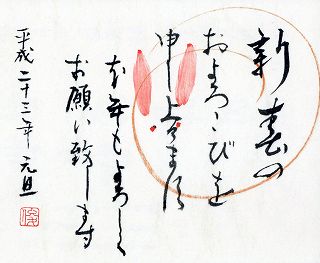 新春の
およろこびを
申上げます
本年もよろしく
お願い致します
平成二十三年 元旦